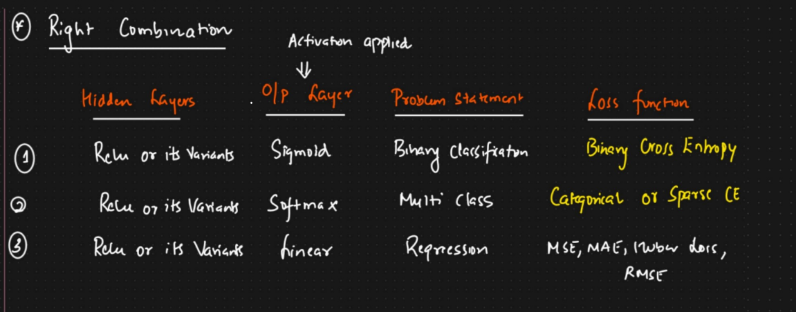 * Right Combination
Activation applied
Hidden Layers O/P Layer Problem Statement Loss function
1 Relu or its Variants Sigmoid Binary Classification Binary Cross Entropy
2 Relu or its Variants Softmax Multi Class Categorical or Sparse CE
3 Relu or its Variants Linear Regression MSE, MAE, Huber loss,
RMSE